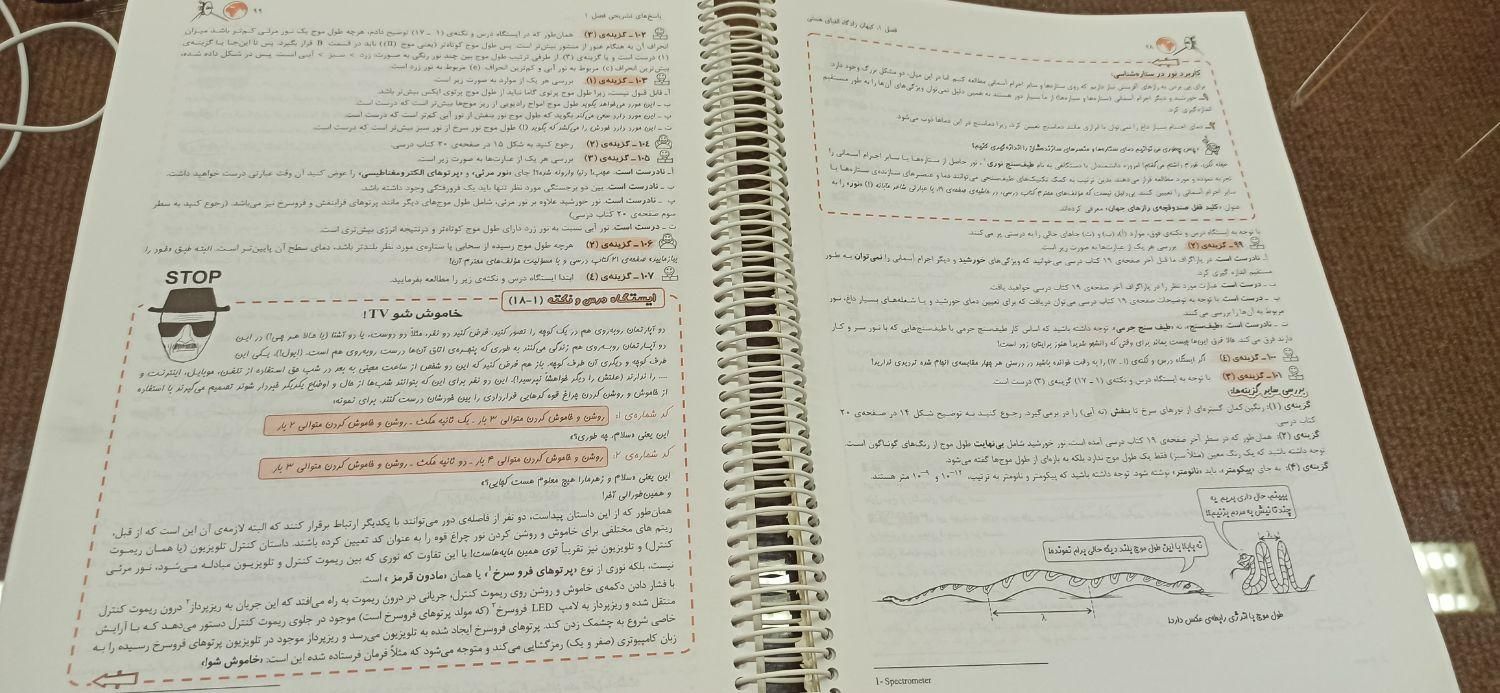 ۹۸
فصل ۱: کیهان زادگاه الفبای هستی
کاربرد نور در ستاره‌شناسی:
برای پی بردن به رازهای آفرینش نیاز داریم که روی ستاره‌ها و سایر اجرام آسمانی مطالعه کنیم اما در این میان، دو مشکل بزرگ وجود دارد:
خورشید و دیگر اجرام آسمانی (ستاره‌ها و سیاره‌ها) از ما بسیار دور هستند به همین دلیل نمی‌توان ویژگی‌های آن‌ها را به طور مستقیم
اندازه‌گیری کرد.
دمای اجسام بسیار داغ را نمی‌توان با ابزاری مانند دماسنج تعیین کرد، زیرا دماسنج در این دماها ذوب می‌شود.
پس چطوری می‌توانیم دمای ستاره‌ها و عنصرهای سازنده‌شان را اندازه‌گیری کنیم؟
دانشمندان با دستگاهی به نام طیف‌سنج نوری¹، نور حاصل از ستاره‌ها یا سایر اجرام آسمانی را
تجزیه نموده و مورد مطالعه قرار می‌دهند. بدین ترتیب به کمک تکنیک‌های طیف‌سنجی می‌توانند دما و عنصرهای سازنده‌ی ستاره‌ها یا
سایر اجرام آسمانی را تعیین کنند. بی‌دلیل نیست که مؤلف‌های محترم کتاب درسی، در حاشیه‌ی صفحه‌ی ۱۹، با عبارتی شاعرمآبانه (!) «نور» را به
عنوان «کلید قفل صندوقچه‌ی رازهای جهان» معرفی کرده‌اند.
با توجه به ایستگاه درس و نکته‌ی فوق، موارد (آ)، (ب) و (ت) جاهای خالی را به درستی پر می‌کنند.
۹۹ـ گزینه‌ی (۲) بررسی هر یک از عبارت‌ها به صورت زیر است:
آـ نادرست است. در پاراگراف ما قبل آخر صفحه‌ی ۱۹ کتاب درسی می‌خوانید که ویژگی‌های خورشید و دیگر اجرام آسمانی را نمی‌توان به طور
مستقیم اندازه گیری کرد.
ب ـ درست است. عبارت مورد نظر را در پاراگراف آخر صفحه‌ی ۱۹ کتاب درسی خواهید یافت.
پ ـ درست است. با توجه به توضیحات صفحه‌ی ۱۹ کتاب درسی می‌توان دریافت که برای تعیین دمای خورشید و یا شعله‌های بسیار داغ، نور
مربوط به آن‌ها را بررسی می کنند.
ت ـ نادرست است. «طیف‌سنج»، نه «طیف سنج جرمی»، توجه داشته باشید که اساس کار طیف‌سنج جرمی با طیف‌سنج‌هایی که با نور سر و کار
دارند فرق می‌کند. حالا فرق این‌ها چیست بماند برای وقتی که دانشجو شدید! هنوز برایتان زود است!
۱۰۰ـ گزینه‌ی (۴) اگر ایستگاه درس و نکته‌ی (۱ـ ۱۷) را به دقت خوانده باشید در درستی هر چهار مقایسه‌ی انجام شده تردیدی ندارید!
۱۰۱ـ گزینه‌ی (۳) با توجه به ایستگاه درس و نکته‌ی (۱ـ ۱۷) گزینه‌ی (۳) درست است.
بررسی سایر گزینه‌ها:
گزینه‌ی (۱): رنگین کمان گستره‌ای از نورهای سرخ تا بنفش (نه آبی) را در برمی‌گیرد. رجوع کنید به توضیح شکل ۱۴ در صفحه‌ی ۲۰
کتاب درسی.
گزینه‌ی (۲): همان‌طور که در سطر آخر صفحه‌ی ۱۹ کتاب درسی آمده است، نور خورشید شامل بی‌نهایت طول موج از رنگ‌های گوناگون است.
توجه داشته باشید که یک رنگ معین (مثلاً سبز) فقط یک طول موج ندارد بلکه به بازه‌ای از طول موج‌ها گفته می‌شود.
گزینه‌ی (۴): به جای «پیکومتر»، باید «نانومتر» نوشته شود. توجه داشته باشید که پیکومتر و نانومتر به ترتیب، ۱۰⁻¹² و ۱۰⁻⁹ متر هستند.
ببینم، حال داری بریم یه
چندتا نیش به مردم بزنیم؟!
λ
نه بابا! با این طول موج بلند دیگه حالی برام نمونده!
λ
طول موج با انرژی رابطه‌ی عکس دارد!
1- Spectrometer
پاسخ‌های تشریحی فصل ۱
۹۹
۱۰۲ـ گزینه‌ی (۳) همان‌طور که در ایستگاه درس و نکته‌ی (۱ ـ ۱۷) توضیح دادم، هرچه طول موج یک نور مرئی کم‌تر باشد، میزان
انحراف آن به هنگام عبور از منشور بیش‌تر است. پس طول موج کوتاه‌تر (یعنی موج (II)) باید در قسمت B قرار بگیرد. پس تا این‌جا یا گزینه‌ی
(۱) درست است و یا گزینه‌ی (۳). از طرفی ترتیب طول موج بین چند نور رنگی به صورت: زرد > سبز > آبی است. پس در شکل داده شده،
بیش‌ترین انحراف (c) مربوط به نور آبی و کم‌ترین انحراف (a) مربوط به نور زرد است.
۱۰۳ـ گزینه‌ی (۱) بررسی هر یک از موارد به صورت زیر است:
آـ قابل قبول نیست، زیرا طول موج پرتوی گاما نباید از طول موج پرتوی ایکس بیش‌تر باشد.
ب ـ این مورد می‌خواهد بگوید طول موج امواج رادیویی از ریز موج‌ها بیش‌تر است که درست است.
پ ـ این مورد دارد سعی می‌کند بگوید که طول موج نور بنفش از نور آبی کم‌تر است که درست است.
ت ـ این مورد دارد خودش را می‌کشد که بگوید (!) طول موج نور سرخ از نور سبز بیش‌تر است که درست است.
۱۰۴ـ گزینه‌ی (۲) رجوع کنید به شکل ۱۵ در صفحه‌ی ۲۰ کتاب درسی.
۱۰۵ـ گزینه‌ی (۳) بررسی هر یک از عبارت‌ها به صورت زیر است:
آـ نادرست است. عجب! دنیا وارونه شده؟! جای «نور مرئی» و «پرتوهای الکترومغناطیسی» را عوض کنید آن وقت عبارتی درست خواهید داشت.
ب ـ نادرست است. بین دو برجستگی مورد نظر تنها باید یک فرورفتگی وجود داشته باشد.
پ ـ نادرست است. نور خورشید علاوه بر نور مرئی، شامل طول موج‌های دیگر مانند پرتوهای فرابنفش و فروسرخ نیز می‌باشد. (رجوع کنید به سطر
سوم صفحه‌ی ۲۰ کتاب درسی)
ت ـ درست است. نور آبی نسبت به نور زرد دارای طول موج کوتاه‌تر و درنتیجه انرژی بیش‌تری است.
۱۰۶ـ گزینه‌ی (۲) هرچه طول موج رسیده از سحابی یا ستاره‌ی مورد نظر بلندتر باشد، دمای سطح آن پایین‌تر است. البته طبق «خود را
بیازمایید» صفحه‌ی ۲۱ کتاب درسی و با مسؤلیت مؤلف‌های محترم آن!
۱۰۷ـ گزینه‌ی (۴) ابتدا ایستگاه درس و نکته‌ی زیر را مطالعه بفرمایید.
STOP
ایستگاه درس و نکته (۱-۱۸)
خاموش شو TV !
دو آپارتمان روبه‌روی هم در یک کوچه را تصور کنید. فرض کنید دو نفر، مثلاً دو دوست، یا دو آشنا (یا حالا هر چی!) در این
دو آپارتمان روبه‌روی هم زندگی می‌کنند به طوری که پنجره‌ی اتاق آن‌ها درست روبه‌روی هم است. (ایول!)، یکی این
طرف کوچه و دیگری آن طرف کوچه. باز هم فرض کنید که این دو شخص از ساعت معینی به بعد در شب حق استفاده از تلفن، موبایل، اینترنت و
.... را ندارند (علتش را دیگر خواهشاً نپرسید!). این دو نفر برای این که بتوانند شب‌ها از حال و اوضاع یکدیگر خبردار شوند تصمیم می‌گیرند با استفاده
از خاموش و روشن کردن چراغ قوه کدهایی قراردادی را بین خودشان درست کنند. برای نمونه:
کد شماره‌ی ۱: روشن و خاموش کردن متوالی ۳ بار ـ یک ثانیه مکث ـ روشن و خاموش کردن متوالی ۲ بار
این یعنی «سلام. چه طوری؟»
کد شماره‌ی ۲: روشن و خاموش کردن متوالی ۴ بار ـ دو ثانیه مکث ـ روشن و خاموش کردن متوالی ۳ بار
این یعنی «سلام و زهرمار! هیچ معلوم هست کجایی؟»
و همین‌طور الی آخر!
همان‌طور که از این داستان پیداست، دو نفر از فاصله‌ی دور می‌توانند با یکدیگر ارتباط برقرار کنند که البته لازمه‌ی آن این است که از قبل،
ریتم های مختلفی برای خاموش و روشن کردن نور چراغ قوه را به عنوان کد تعیین کرده باشند. داستان کنترل تلویزیون (یا همان ریموت
کنترل) و تلویزیون نیز تقریباً توی همین مایه‌هاست! با این تفاوت که نوری که بین ریموت کنترل و تلویزیون مبادله می‌شود، نور مرئی
نیست، بلکه نوری از نوع «پرتوهای فرو سرخ¹» یا همان «مادون قرمز» است.
با فشار دادن دکمه‌ی خاموش و روشن روی ریموت کنترل، جریانی در درون ریموت به راه می‌افتد که این جریان به ریزپرداز² درون ریموت کنترل
منتقل شده و ریزپرداز به لامپ LED فروسرخ³ (که مولد پرتوهای فروسرخ است) موجود در جلوی ریموت کنترل دستور می‌دهد که با آرایش
خاصی شروع به چشمک زدن کند. پرتوهای فروسرخ ایجاد شده به تلویزیون می‌رسد و ریزپرداز موجود در تلویزیون پرتوهای فروسرخ رسیده را به
زبان کامپیوتری (صفر و یک) رمزگشایی می‌کند و متوجه می‌شود که مثلاً فرمان فرستاده شده این است: «خاموش شو!»